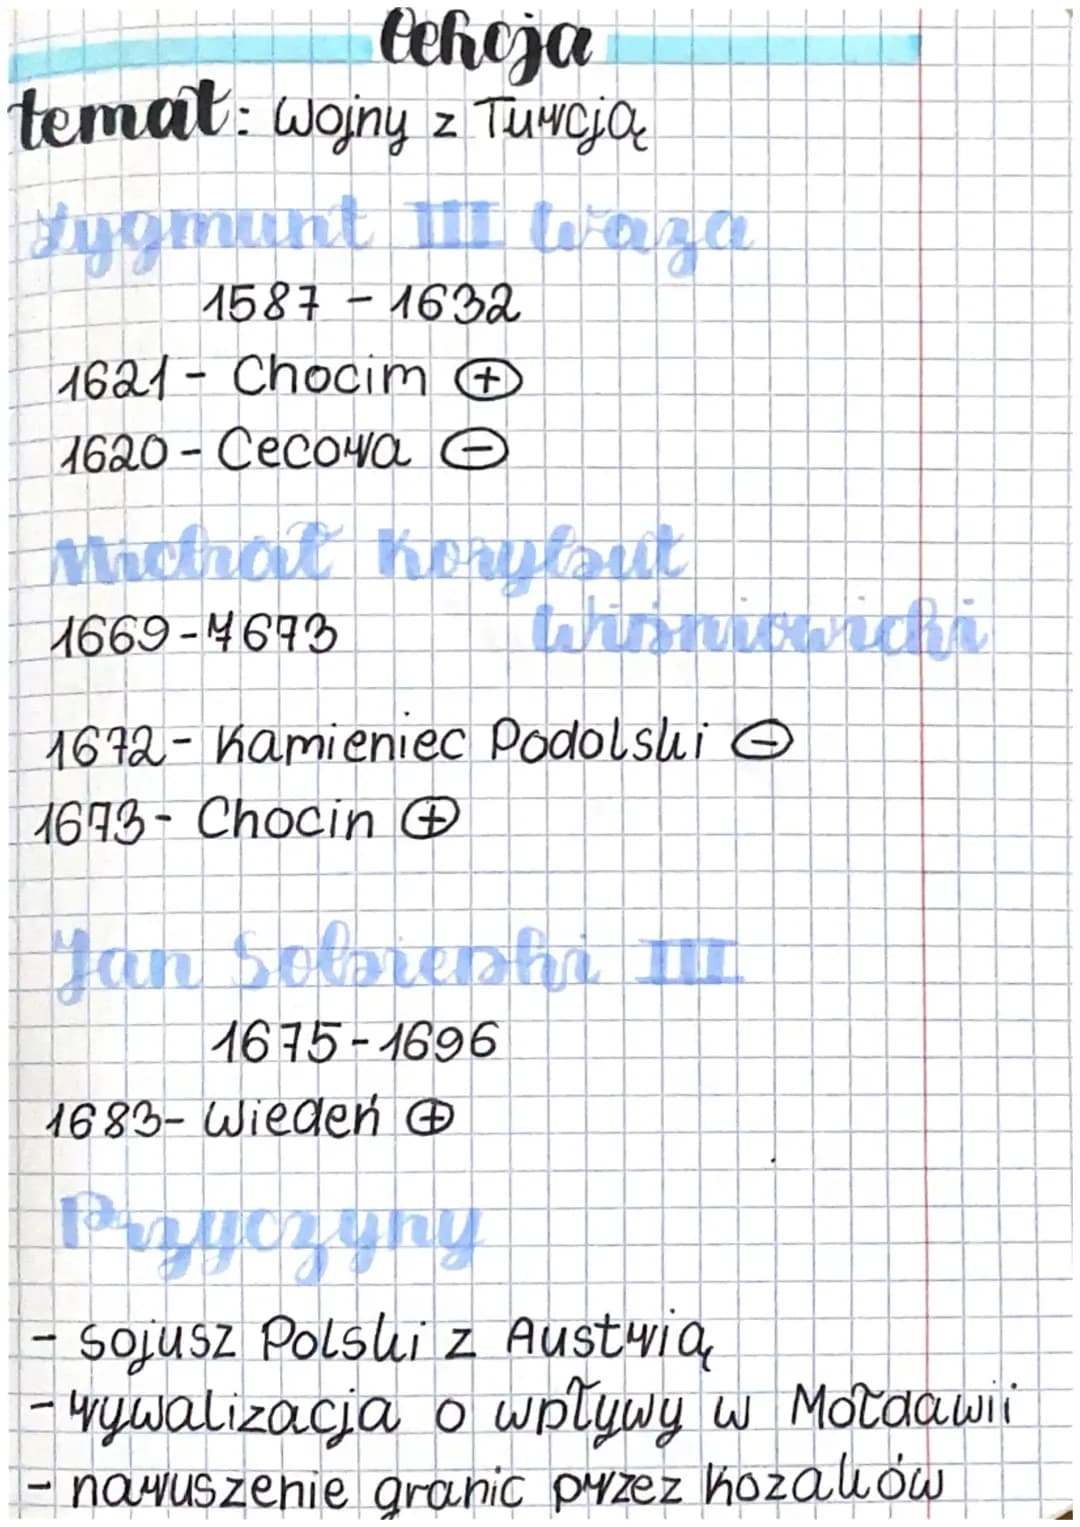 Lekcja
temat: Wojny z Turcją
Zygmunt III Waza
1587 - 1632
1621 - Chocim ⊕
1620 - Cecora ⊖
Michał Korybut
1669 - 1673 Wiśniowicki
1672 - Kamieniec Podolski ⊖
1673 - Chocin ⊕
Jan Sobieski III
1675 - 1696
1683 - Wiedeń ⊕
Przyczyny
- sojusz Polski z Austrią
- rywalizacja o wpływy w Mołdawii
- naruszenie granic przez kozaków